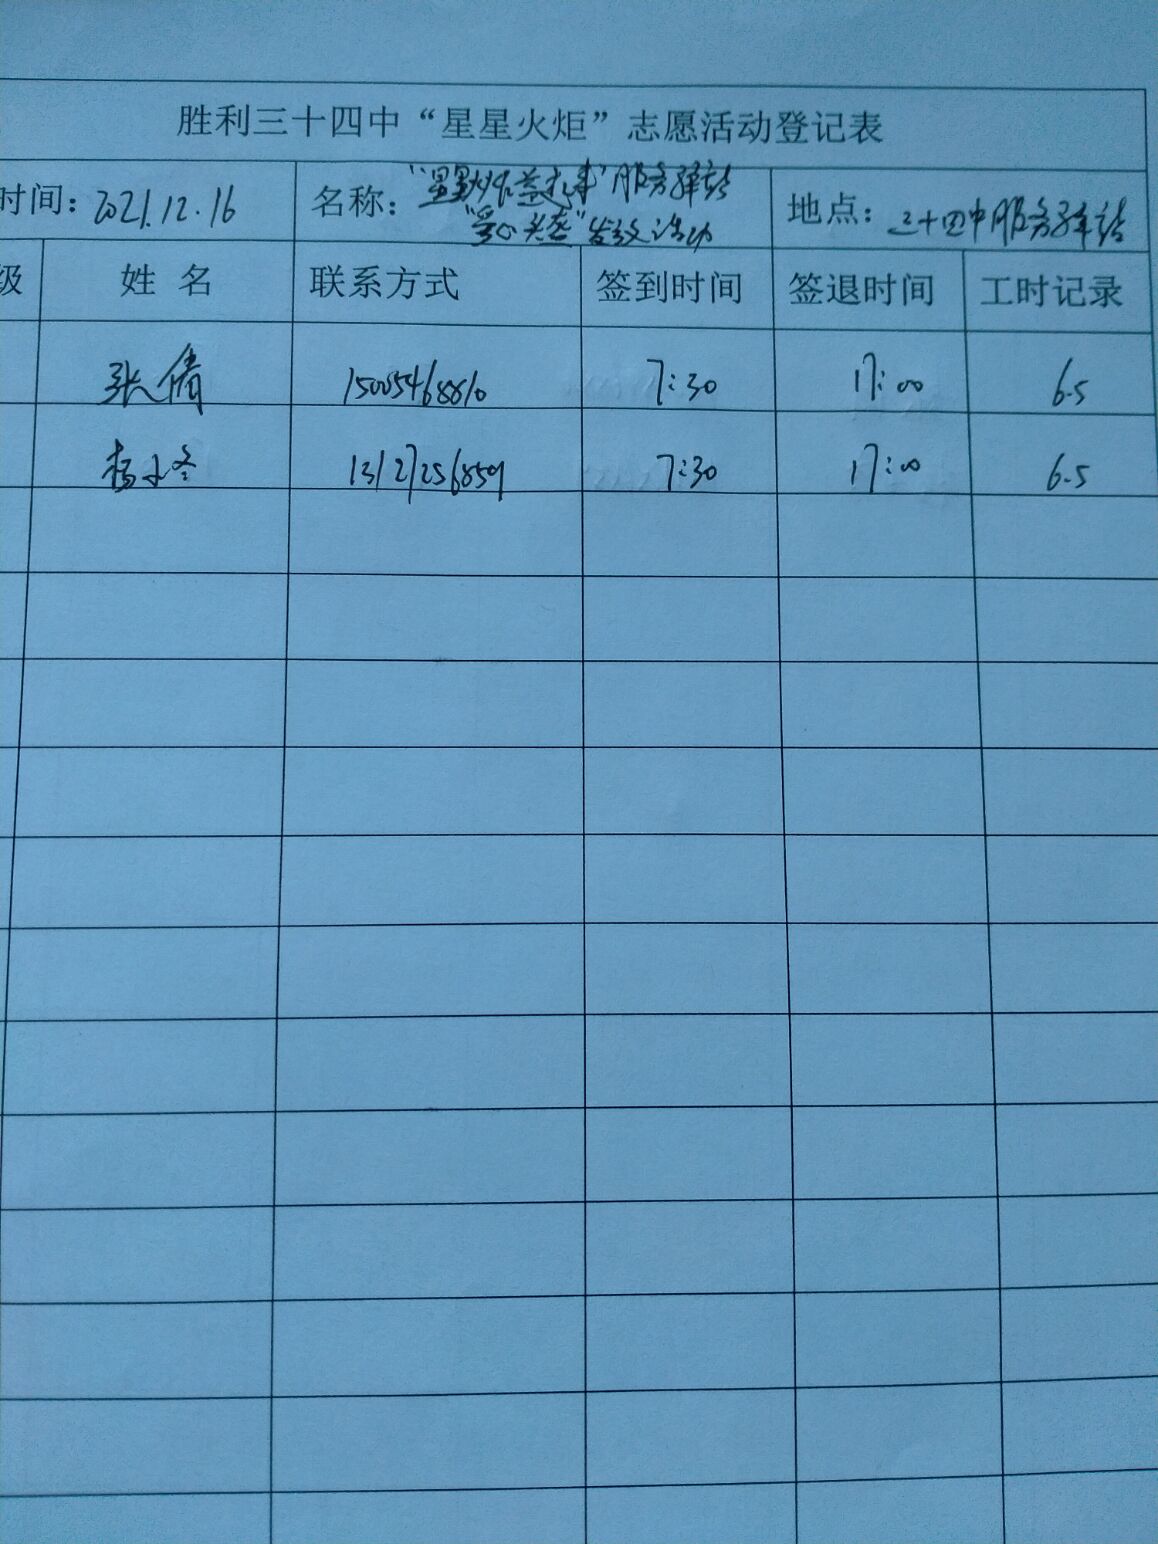 胜利三十四中“星星火炬”志愿活动登记表
时间：2021.12.16 名称：“星星火炬益起来”服务驿站 地点：三十四中服务驿站
“爱心头盔”发放活动
级 姓名 联系方式 签到时间 签退时间 工时记录
张倩 15005468810 7:30 17:00 6.5
杨小冬 13127256859 7:30 17:00 6.5